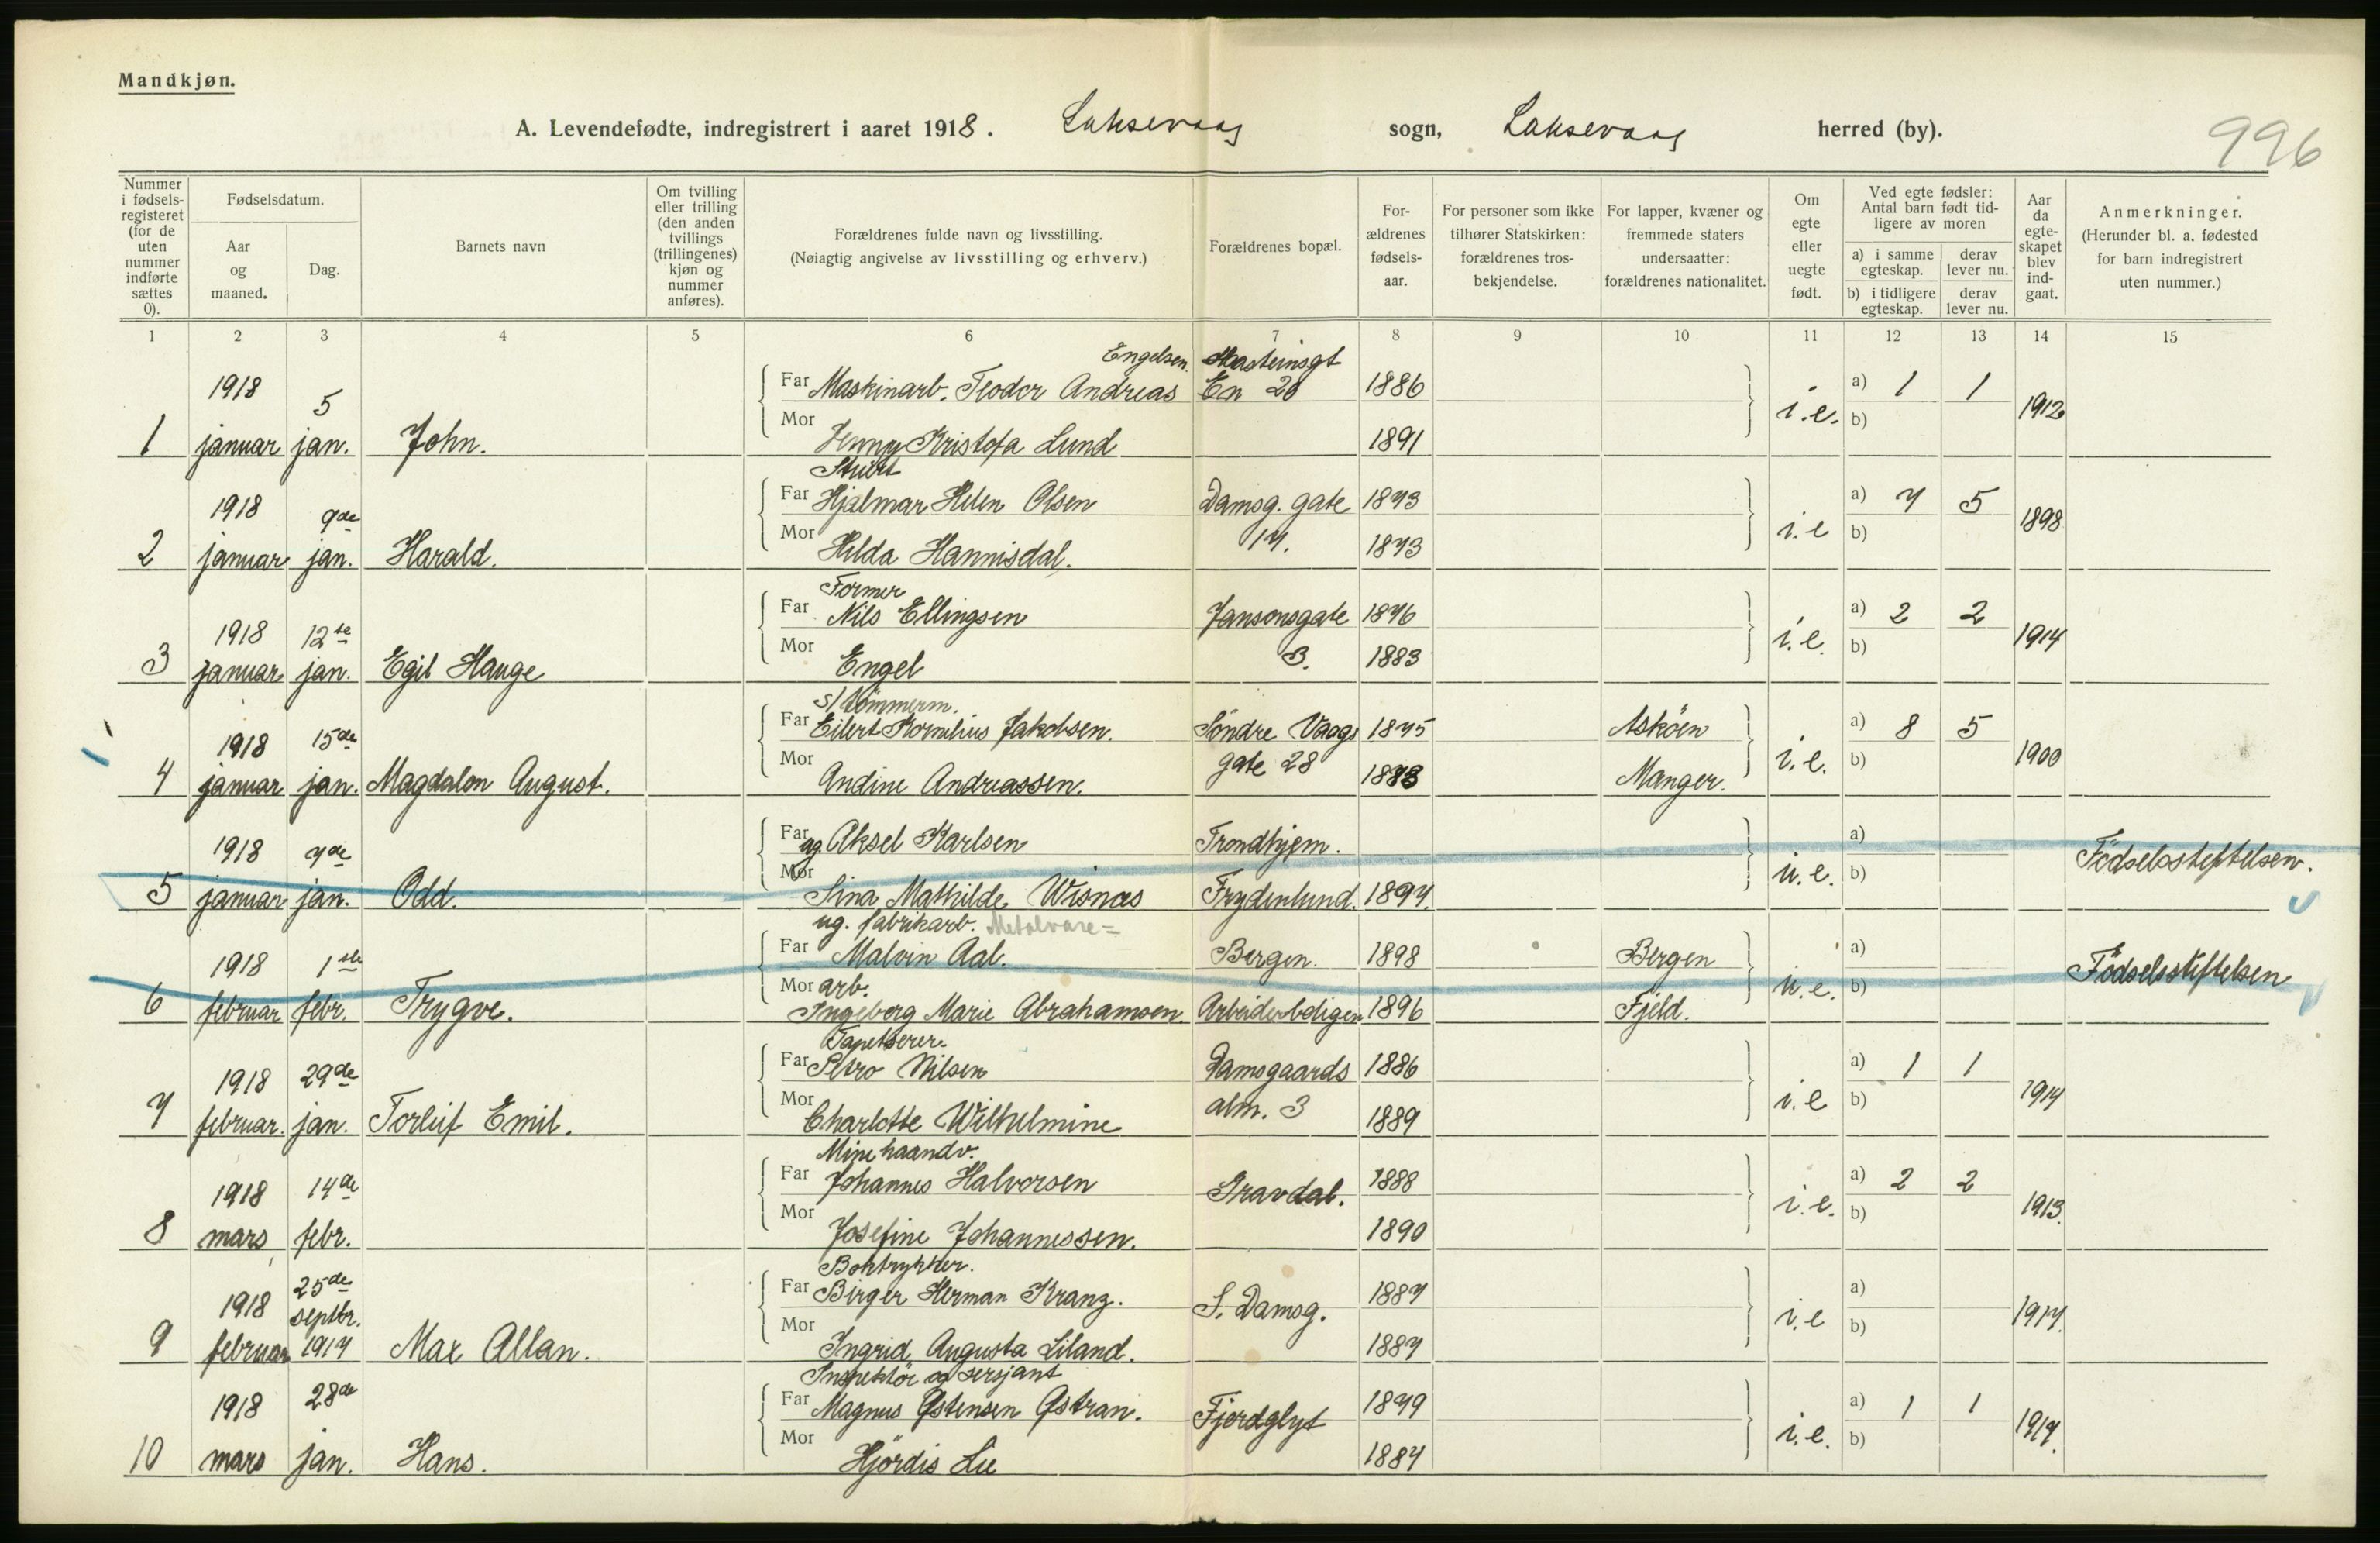 Mandkjøn.
A. Levendefødte, indregistrert i aaret 1918. Laksevaag sogn, Laksevaag herred (by).
996
Nummer i fødselsregisteret (for de uten nummer indførte sættes 0).
Fødselsdatum.
Aar og maaned.
Dag.
Barnets navn
Om tvilling eller trilling (den anden tvillings (trillingenes) kjøn og nummer anføres).
Forældrenes fulde navn og livsstilling.
(Nøiagtig angivelse av livsstilling og erhverv.)
Forældrenes bopæl.
Forældrenes fødselsaar.
For personer som ikke tilhører Statskirken: forældrenes trosbekjendelse.
For lapper, kvæner og fremmede staters undersaatter: forældrenes nationalitet.
Om egte eller uegte født.
Ved egte fødsler: Antal barn født tidligere av moren
a) i samme egteskap.
derav lever nu.
b) i tidligere egteskap.
derav lever nu.
Aar da egteskapet blev indgaat.
Anmerkninger.
(Herunder bl. a. fødested for barn indregistrert uten nummer.)
1 2 3 4 5 6 7 8 9 10 11 12 13 14 15
Engelsen.
1918 5 Far Maskinarb. Teodor Andreas En 20 1886 a) 1 1
1 januar jan. John. Mor Jenny Kristofa Lund 1891 i.e. b) 1912
1918 9de Far Hjalmar Helen Olsen Damsg. gate 1873 a) 7 5
2 januar jan. Harald. Mor Hilda Hannisdal. 17. 1873 i.e b) 1898
Former
1918 12te Far Nils Ellingsen Jansonsgate 1876 a) 2 2
3 januar jan. Egil Hauge Mor Engel 3. 1883 i.e. b) 1914
s/tömmerm.
1918 15de Far Eilert Kornelius Jakobsen. Söndre Vaags 1875 Asköen a) 8 5
4 januar jan. Magdalon August. Mor Andine Andreassen. gate 28 1883 Manger. i.e. b) 1900
1918 7de Far ug. Aksel Karlsen Trondhjem. a) Födselsstiftelsen.
5 januar jan. Odd. Mor Sina Mathilde Wisnæs Frydenlund. 1897. u.e. b)
ug. fabrikarb. Metalvare=
1918 1ste Far Malvin Aal. Bergen. 1898 Bergen a) Födselsstiftelsen
6 februar febr. Trygve. Mor arb. Ingeborg Marie Abrahamsen. Arbeiderboligen 1896 Fjeld. u.e. b)
Tapetserer.
1918 29de Far Petro Nilsen Damsgaards 1886 a) 1 1
7 februar. jan. Torleif Emil. Mor Charlotte Wilhelmine alm. 3 1889 i.e b) 1914
Mine haandv.
1918 14de Far Johannes Halvorsen Gravdal. 1888 a) 2 2
8 mars febr. Mor Josefine Johannessen. 1890 i.e. b) 1913.
Boktrykker.
1918 25de septbr. Far Birger Herman Kranz. S. Damsg. 1887 a)
9 februar 1917 Max Allan. Mor Ingrid Augusta Liland. 1887 i.e b) 1917.
Inspektör og sersjant
1918 28de Far Magnus Østensen Østran. Fjordglyt 1879 a) 1 1
10 mars jan. Hans. Mor Hjördis Lie 1884 i.e. b)